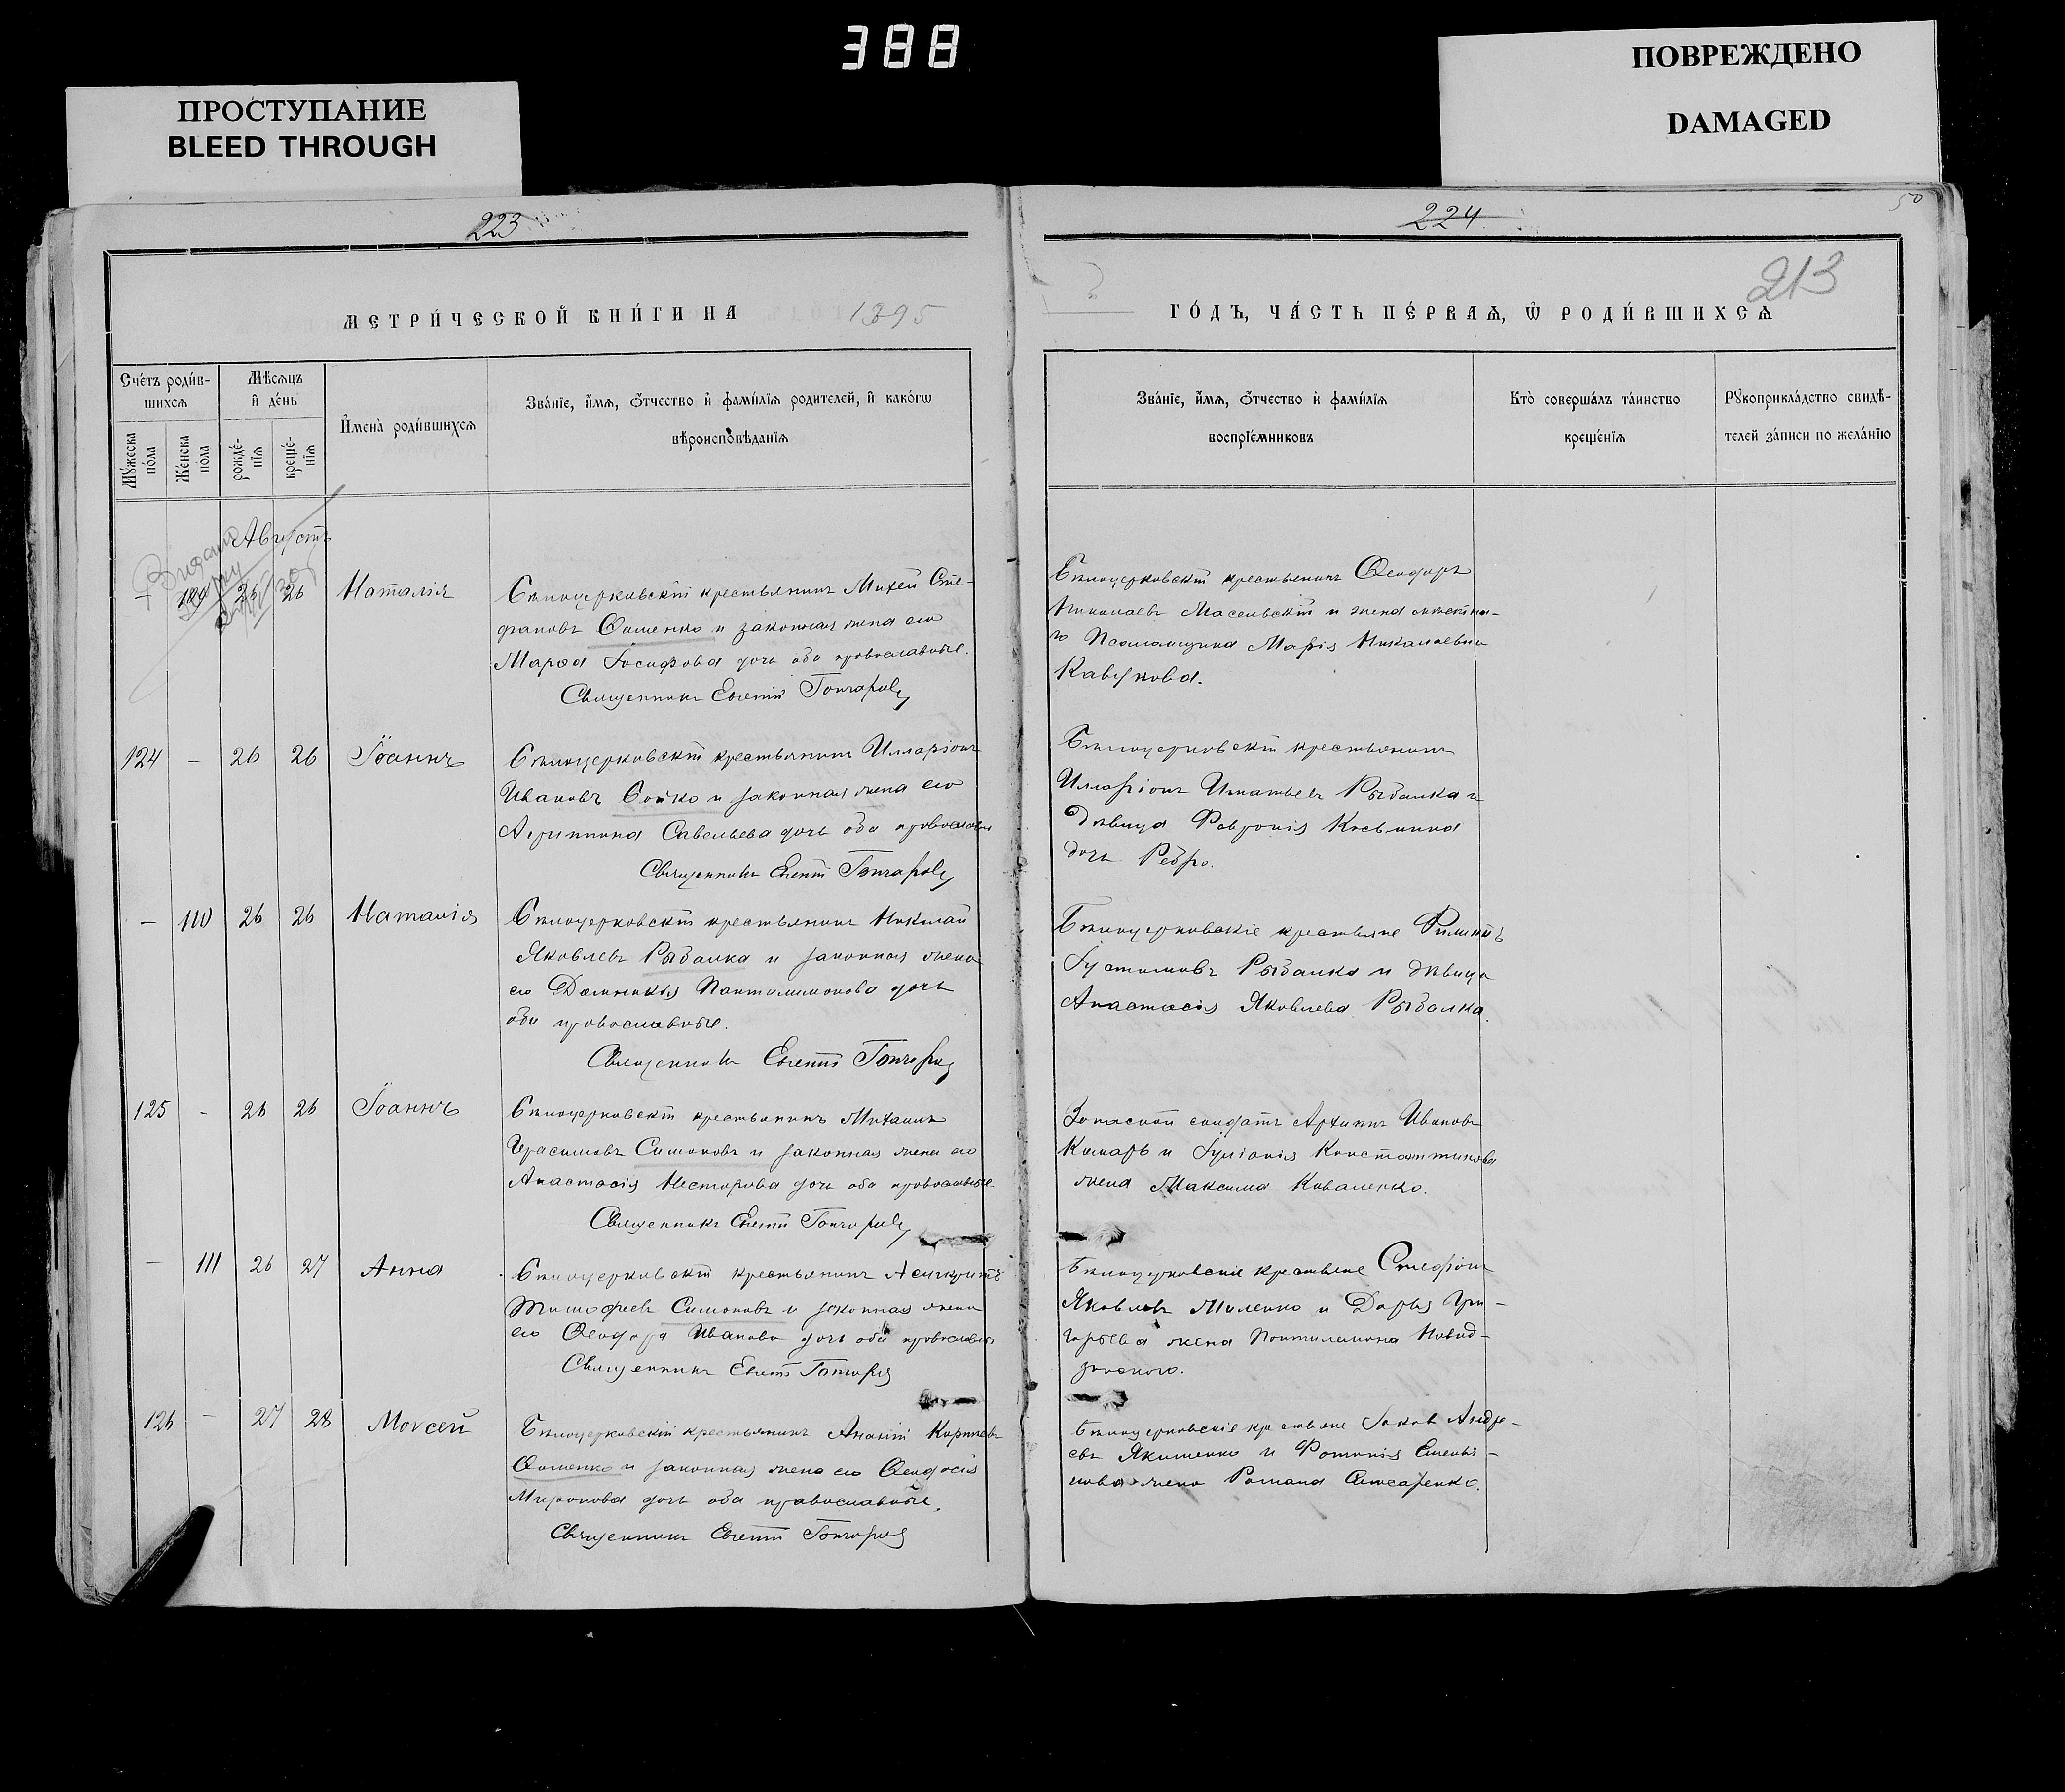 388
ПРОСТУПАНИЕ
BLEED THROUGH
ПОВРЕЖДЕНО
DAMAGED
223
224
50
213
МЕТРИ́ЧЕСКОЙ КНИ́ГИ НА 1895
ГО́ДЪ, ЧА́СТЬ ПЕ́РВАѦ, Ѡ РОДИ́ВШИХСѦ
Сче́тъ роди́в-
шихсѧ
Мѣ́сѧцъ
и҆ де́нь
Мꙋ́жеска
по́ла
Же́нска
пола
рожде́-
нїѧ
креще́-
нїѧ
И҆мена̀ роди́вшихсѧ
Зва́нїе, и҆́мѧ, ѻ҆́тчество и҆ фами́лїѧ роди́телей, и҆ како́гѡ
вѣроисповѣ́данїѧ
Зва́нїе, и҆́мѧ, ѻ҆́тчество и҆ фами́лїѧ
воспрїе́мниковъ
Кто̀ соверша́лъ та́инство
креще́нїѧ
Рꙋкоприкла́дство свидѣ́-
телей за́писи по жела́нїю
Августъ
– 26 26 Наталія
Бѣлоцерковскій крестьянинъ Михей Сте-
фановъ Ѳоменко и законная жена его
Марѳа Іосифова дочь оба православные.
Священникъ Евгеній Гончаровъ
Бѣлоцерковскій крестьянинъ Ѳеодоръ
Николаевъ и жена
Марія Николаевна
124 – 26 26 Іоаннъ
Бѣлоцерковскій крестьянинъ Илларіонъ
Ивановъ Бойко и законная жена его
Агриппина Савельева дочь оба православн
Священникъ Евгеній Гончаровъ
Бѣлоцерковскій крестьянинъ
Илларіонъ Игнатьевъ Рыбалка и
дѣвица Февронія
дочь Ребро.
– 110 26 26 Наталія
Бѣлоцерковскій крестьянинъ Николай
Яковлевъ Рыбалка и законная жена
его Домникія Пантелимонова дочь
оба православные.
Священникъ Евгеній Гончаровъ
Бѣлоцерковскіе крестьяне Филиппъ
Іустиновъ Рыбалка и дѣвица
Анастасія Яковлева Рыбалка.
125 – 26 26 Іоаннъ
Бѣлоцерковскій крестьянинъ Михаилъ
Герасимовъ Симоновъ и законная жена его
Анастасія Несторова дочь оба православные.
Священникъ Евгеній Гончаровъ
Запасной солдатъ Архипъ Ивановъ
и Іуліанія Константинова
жена Максима Коваленко.
– 111 26 27 Анна
Бѣлоцерковскій крестьянинъ Асигкритъ
Тимофеевъ Симоновъ и законная жена
его Ѳеодора Иванова дочь оба православн
Священникъ Евгеній Гончаровъ
Бѣлоцерковскіе крестьяне Стефанъ
Яковлевъ и Дарья Гри-
горьева жена Пантелимона
126 – 27 28 Моѵсей
Бѣлоцерковскій крестьянинъ Ананій Карповъ
Ѳоменко и законная жена его Ѳеодосія
Миронова дочь оба православные.
Священникъ Евгеній Гончаровъ
Бѣлоцерковскіе крестьяне Іаковъ Андре-
евъ Якименко и Фотинія
жена Романа